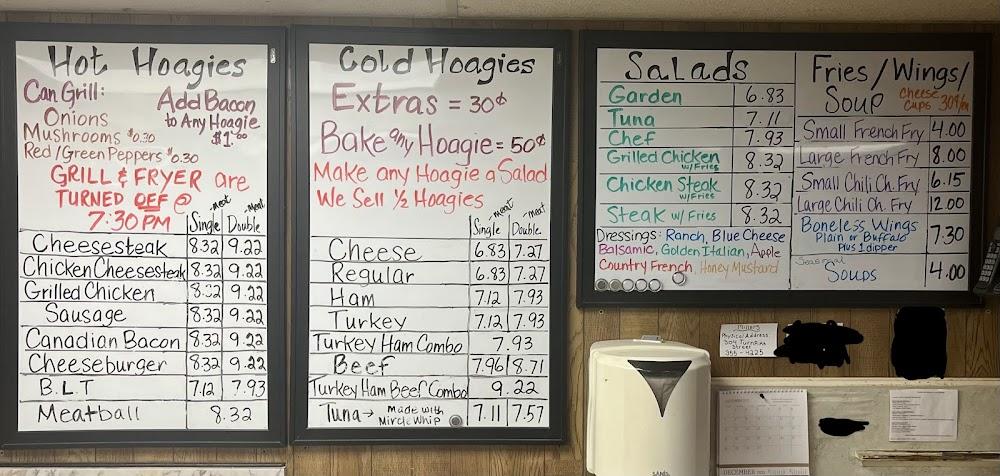 Hot Hoagies
Can Grill:
Onions
Mushrooms $0.30
Red/Green Peppers $0.30
Add Bacon
to Any Hoagie
$1.00
GRILL & FRYER are
TURNED OFF @
7:30PM
Single -meat Double -meat
Cheesesteak 8.32 9.22
Chicken Cheesesteak 8.32 9.22
Grilled Chicken 8.32 9.22
Sausage 8.32 9.22
Canadian Bacon 8.32 9.22
Cheeseburger 8.32 9.22
B.L.T 7.12 7.93
Meatball 8.32
Cold Hoagies
Extras = 30¢
Bake any Hoagie = 50¢
Make any Hoagie a Salad
We Sell 1/2 Hoagies
Single -meat Double -meat
Cheese 6.83 7.27
Regular 6.83 7.27
Ham 7.12 7.93
Turkey 7.12 7.93
Turkey Ham Combo 7.93
Beef 7.96 8.71
Turkey Ham Beef Combo 9.22
Tuna → Made with
Mircle Whip 7.11 7.57
Salads
Garden 6.83
Tuna 7.11
Chef 7.93
Grilled Chicken w/Fries 8.32
Chicken Steak w/Fries 8.32
Steak w/Fries 8.32
Dressings: Ranch, Blue Cheese
Balsamic, Golden Italian, Apple
Country French, Honey Mustard
Fries/Wings/
Soup
cheese
cups 30¢
Small French Fry 4.00
Large French Fry 8.00
Small Chili Ch. Fry 6.15
Large Chili Ch. Fry 12.00
Boneless Wings
Plain or Buffalo
Plus 1 dipper 7.30
Seasonal
Soups 4.00
Physical Address
304 Turnpike
Street
355-4225
DECEMBER